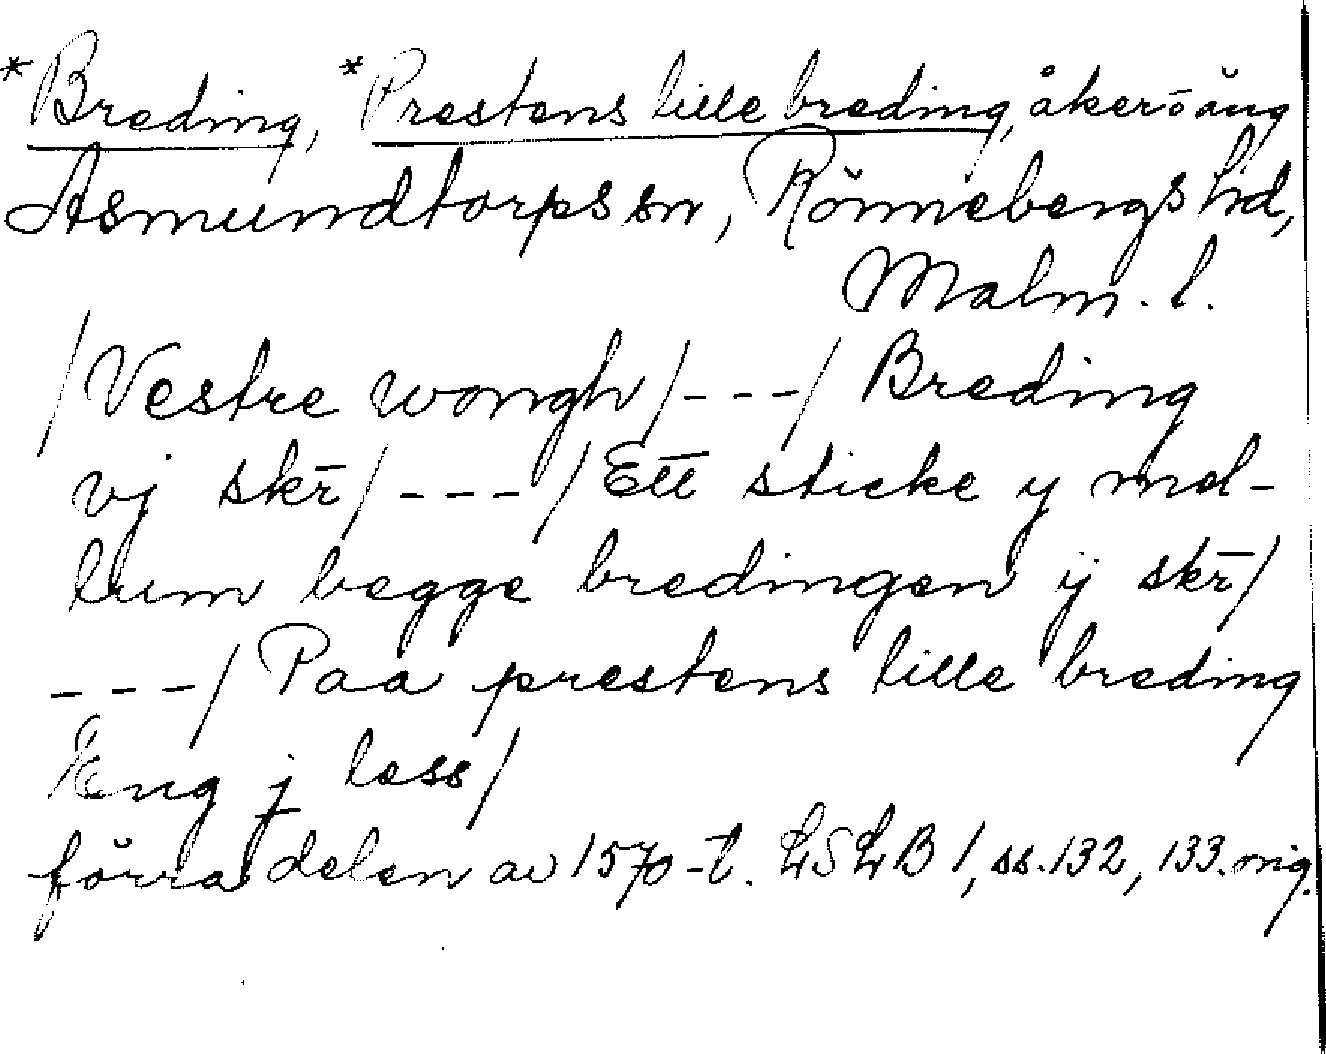 *Breding, *Prestens lille breding, åker o äng
Asmundtorps sn, Rönnebergs hd,
Malm. l.
/Vestre wongh/---/ Breding
vj skr̄/---/Ett sticke y mel-
lum begge bredingen ij skr̄/
---/Paa prestens lille breding
Eng j less/
förra delen av 1570-t. LSLB 1, ss. 132, 133. orig.